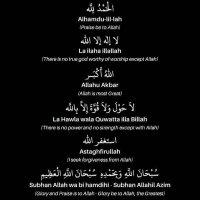 الْحَمْدُ لِلَّٰهِ
Alhamdu-lil-lah
(Praise be to Allah)
لَا إِلَٰهَ إِلَّا اللّٰهِ
La ilaha illallah
(There is no true god worthy of worship except Allah)
اللّٰهُ أَكْبَرُ
Allahu Akbar
(Allah is most Great)
لَا حَوْلَ وَلَا قُوَّةَ إِلَّا بِاللّٰهِ
La Hawla wala Quwatta illa Billah
(There is no power and no strength except with Allah)
استغفر الله
Astaghfirullah
(I seek forgiveness from Allah)
سُبْحَانَ اللّٰهِ وَبِحَمْدِهِ سُبْحَانَ اللّٰهِ الْعَظِيمِ
Subhan Allah wa bi hamdihi - Subhan Allahil Azim
(Glory and Praise is to Allah - Glory be to Allah, the Greatest)